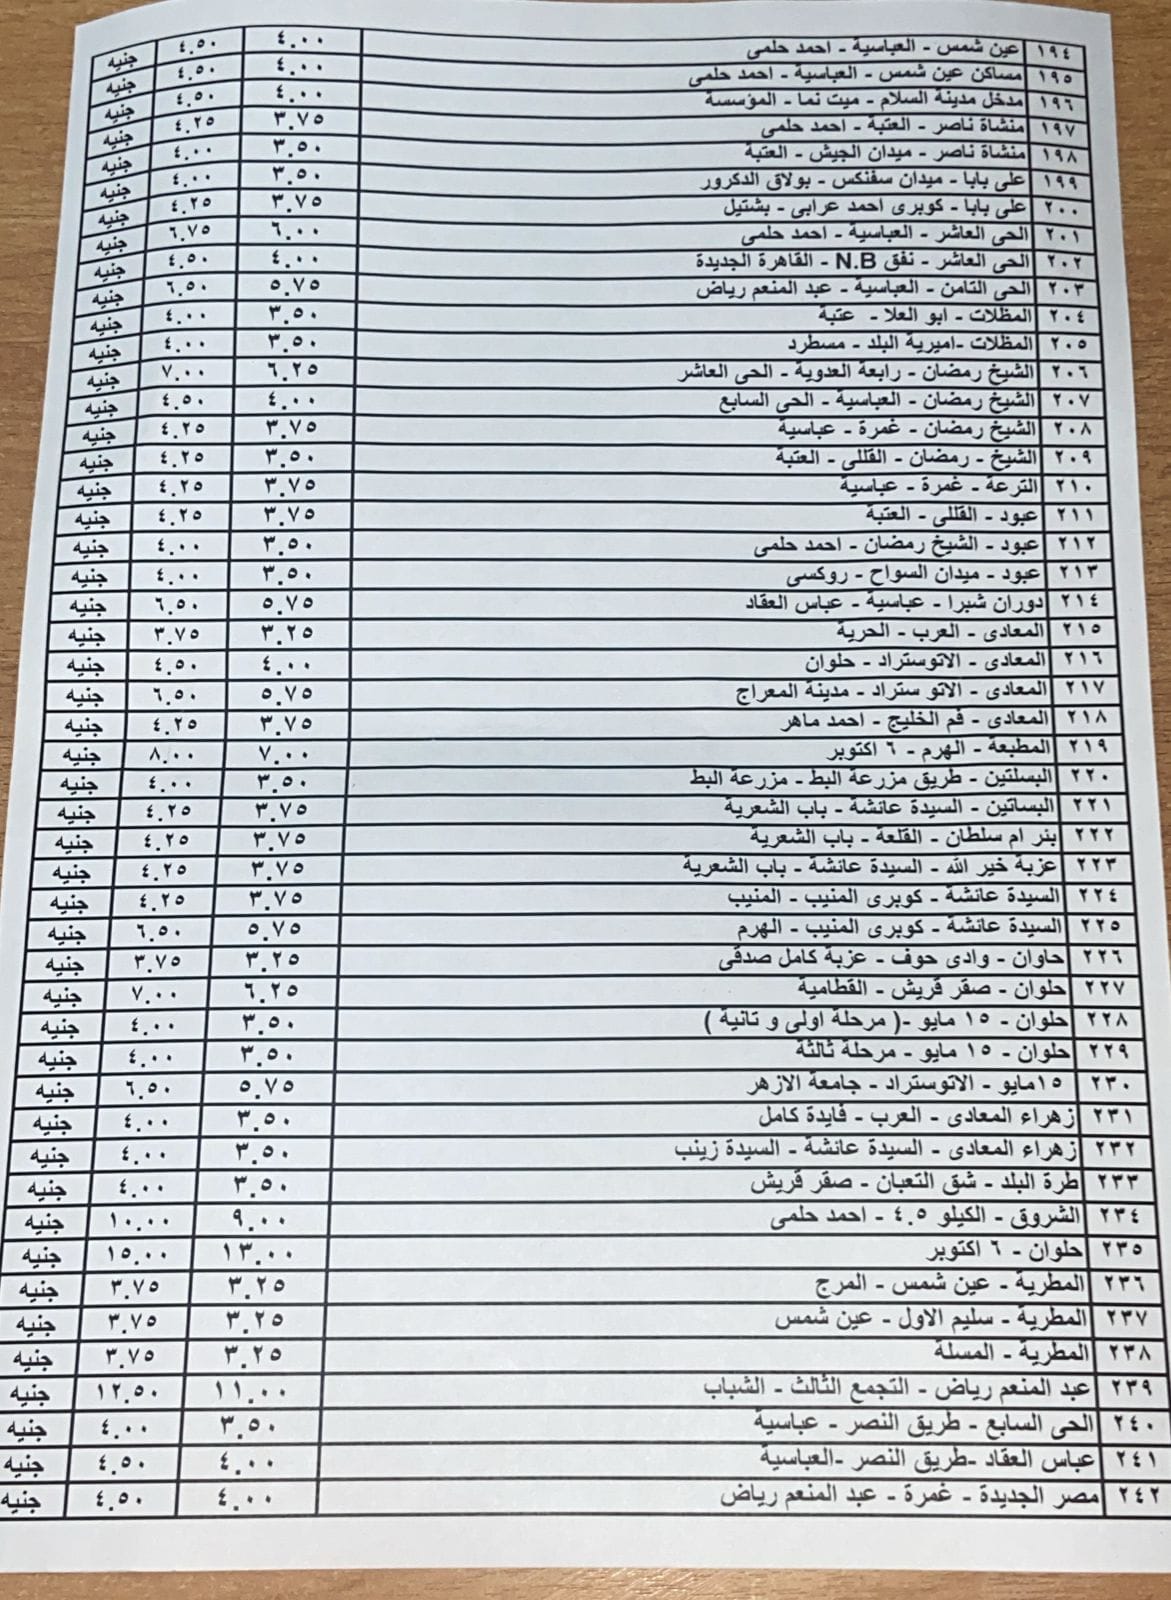 ١٩٤ عين شمس - العباسية - احمد حلمى ٤.٠٠ ٤.٥٠ جنيه
١٩٥ مساكن عين شمس - العباسية - احمد حلمى ٤.٠٠ ٤.٥٠ جنيه
١٩٦ مدخل مدينة السلام - ميت نما - المؤسسة ٤.٠٠ ٤.٥٠ جنيه
١٩٧ منشاة ناصر - العتبة - احمد حلمى ٣.٧٥ ٤.٢٥ جنيه
١٩٨ منشاة ناصر - ميدان الجيش - العتبة ٣.٥٠ ٤.٠٠ جنيه
١٩٩ على بابا - ميدان سفنكس - بولاق الدكرور ٣.٥٠ ٤.٠٠ جنيه
٢٠٠ على بابا - كوبرى احمد عرابى - بشتيل ٣.٧٥ ٤.٢٥ جنيه
٢٠١ الحى العاشر - العباسية - احمد حلمى ٦.٠٠ ٦.٧٥ جنيه
٢٠٢ الحى العاشر - نفق N.B - القاهرة الجديدة ٤.٠٠ ٤.٥٠ جنيه
٢٠٣ الحى الثامن - العباسية - عبد المنعم رياض ٥.٧٥ ٦.٥٠ جنيه
٢٠٤ المظلات - ابو العلا - عتبة ٣.٥٠ ٤.٠٠ جنيه
٢٠٥ المظلات -اميرية البلد - مسطرد ٣.٥٠ ٤.٠٠ جنيه
٢٠٦ الشيخ رمضان - رابعة العدوية - الحى العاشر ٦.٢٥ ٧.٠٠ جنيه
٢٠٧ الشيخ رمضان - العباسية - الحى السابع ٤.٠٠ ٤.٥٠ جنيه
٢٠٨ الشيخ رمضان - غمرة - عباسية ٣.٧٥ ٤.٢٥ جنيه
٢٠٩ الشيخ - رمضان - القللى - العتبة ٣.٥٠ ٤.٢٥ جنيه
٢١٠ الترعة - غمرة - عباسية ٣.٧٥ ٤.٢٥ جنيه
٢١١ عبود - القللى - العتبة ٣.٧٥ ٤.٢٥ جنيه
٢١٢ عبود - الشيخ رمضان - احمد حلمى ٣.٥٠ ٤.٠٠ جنيه
٢١٣ عبود - ميدان السواح - روكسى ٣.٥٠ ٤.٠٠ جنيه
٢١٤ دوران شبرا - عباسية - عباس العقاد ٥.٧٥ ٦.٥٠ جنيه
٢١٥ المعادى - العرب - الحرية ٣.٢٥ ٣.٧٥ جنيه
٢١٦ المعادى - الاتوستراد - حلوان ٤.٠٠ ٤.٥٠ جنيه
٢١٧ المعادى - الاتو ستراد - مدينة المعراج ٥.٧٥ ٦.٥٠ جنيه
٢١٨ المعادى - فم الخليج - احمد ماهر ٣.٧٥ ٤.٢٥ جنيه
٢١٩ المطبعة - الهرم - ٦ اكتوبر ٧.٠٠ ٨.٠٠ جنيه
٢٢٠ البسلتين - طريق مزرعة البط - مزرعة البط ٣.٥٠ ٤.٠٠ جنيه
٢٢١ البساتين - السيدة عائشة - باب الشعرية ٣.٧٥ ٤.٢٥ جنيه
٢٢٢ بئر ام سلطان - القلعة - باب الشعرية ٣.٧٥ ٤.٢٥ جنيه
٢٢٣ عزبة خير الله - السيدة عائشة - باب الشعرية ٣.٧٥ ٤.٢٥ جنيه
٢٢٤ السيدة عائشة - كوبرى المنيب - المنيب ٣.٧٥ ٤.٢٥ جنيه
٢٢٥ السيدة عائشة - كوبرى المنيب - الهرم ٥.٧٥ ٦.٥٠ جنيه
٢٢٦ حاوان - وادى حوف - عزبة كامل صدقى ٣.٢٥ ٣.٧٥ جنيه
٢٢٧ حلوان - صقر قريش - القطامية ٦.٢٥ ٧.٠٠ جنيه
٢٢٨ حلوان - ١٥ مايو -( مرحلة اولى و ثانية ) ٣.٥٠ ٤.٠٠ جنيه
٢٢٩ حلوان - ١٥ مايو - مرحلة ثالثة ٣.٥٠ ٤.٠٠ جنيه
٢٣٠ ١٥مايو - الاتوستراد - جامعة الازهر ٥.٧٥ ٦.٥٠ جنيه
٢٣١ زهراء المعادى - العرب - فايدة كامل ٣.٥٠ ٤.٠٠ جنيه
٢٣٢ زهراء المعادى - السيدة عائشة - السيدة زينب ٣.٥٠ ٤.٠٠ جنيه
٢٣٣ طرة البلد - شق الثعبان - صقر قريش ٣.٥٠ ٤.٠٠ جنيه
٢٣٤ الشروق - الكيلو ٤.٥ - احمد حلمى ٩.٠٠ ١٠.٠٠ جنيه
٢٣٥ حلوان - ٦ اكتوبر ١٣.٠٠ ١٥.٠٠ جنيه
٢٣٦ المطرية - عين شمس - المرج ٣.٢٥ ٣.٧٥ جنيه
٢٣٧ المطرية - سليم الاول - عين شمس ٣.٢٥ ٣.٧٥ جنيه
٢٣٨ المطرية - المسلة ٣.٢٥ ٣.٧٥ جنيه
٢٣٩ عبد المنعم رياض - التجمع الثالث - الشباب ١١.٠٠ ١٢.٥٠ جنيه
٢٤٠ الحى السابع - طريق النصر - عباسية ٣.٥٠ ٤.٠٠ جنيه
٢٤١ عباس العقاد -طريق النصر -العباسية ٤.٠٠ ٤.٥٠ جنيه
٢٤٢ مصر الجديدة - غمرة - عبد المنعم رياض ٤.٠٠ ٤.٥٠ جنيه